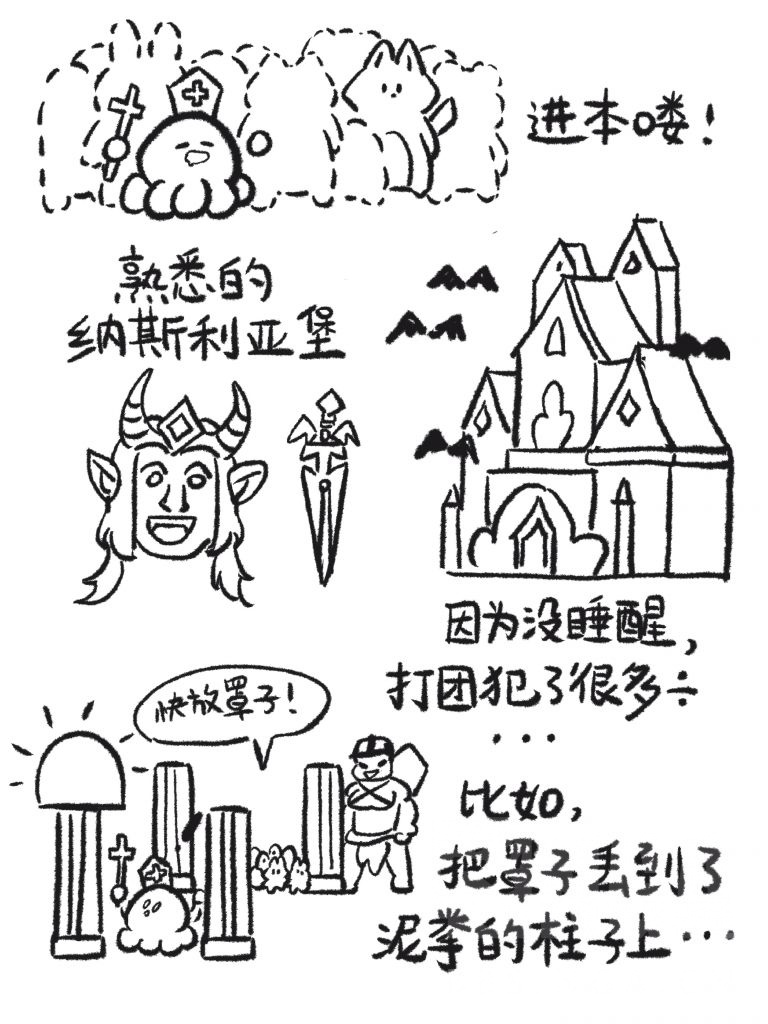 进本喽！
熟悉的
纳斯利亚堡
因为没睡醒，
打团犯了很多÷
...
快放罩子！
比如，
把罩子丢到了
泥拳的柱子上...